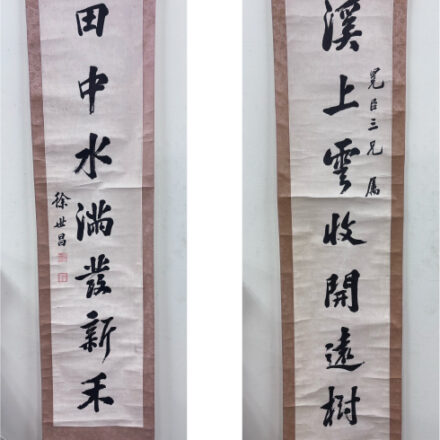 溪上雲收開遠樹
冕臣三兄屬
田中水滿發新禾
徐世昌